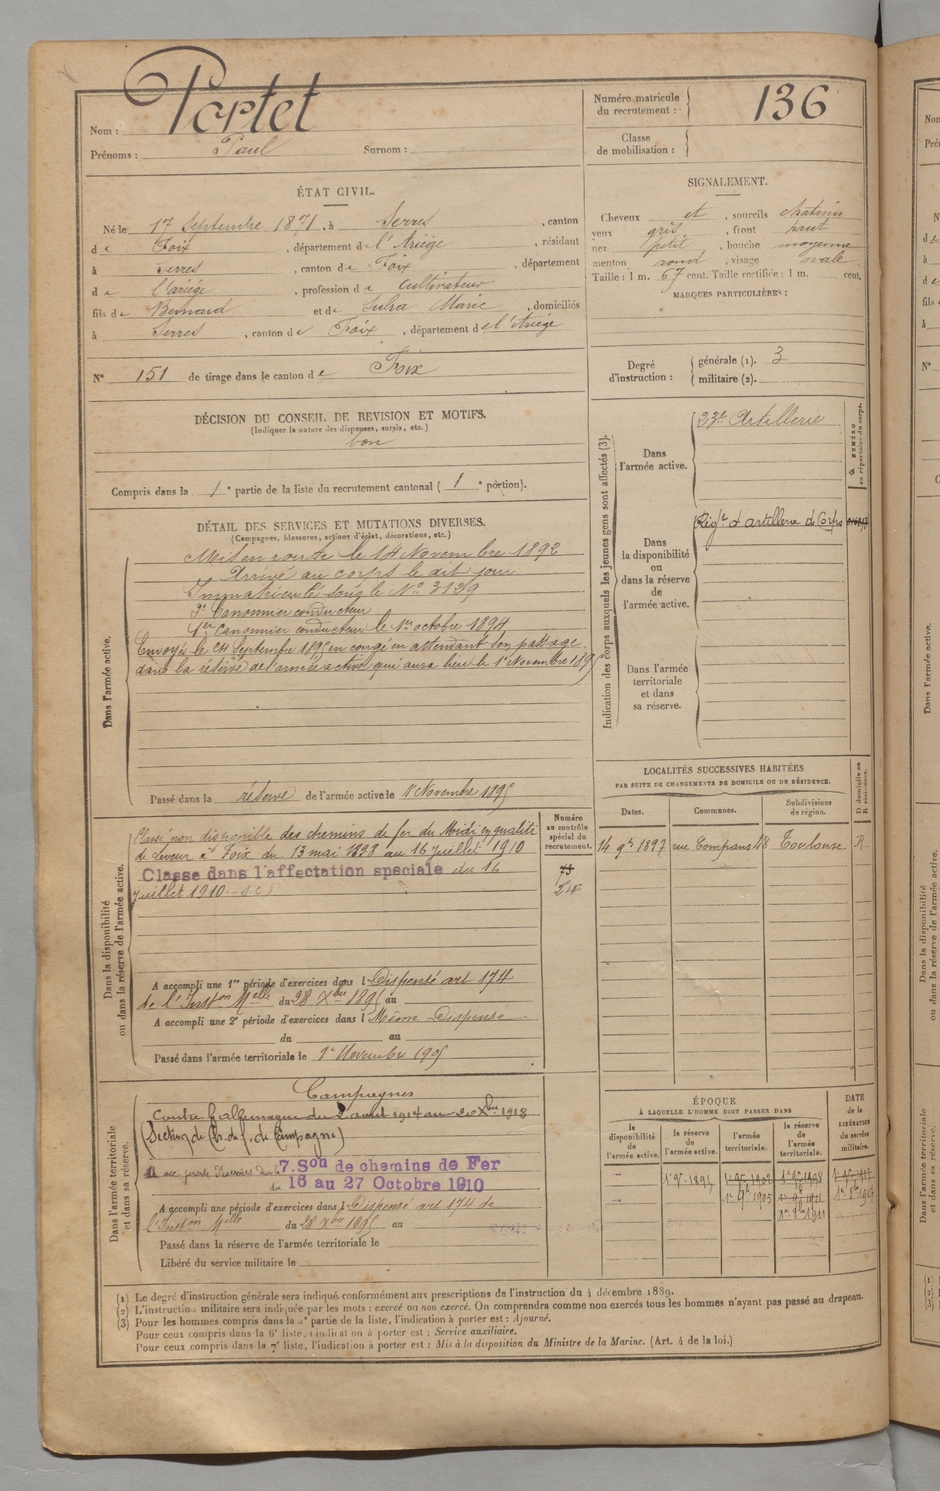 Nom : Portet
Prénoms : Paul Surnom :
Numéro matricule du recrutement : 136
Classe de mobilisation :
ÉTAT CIVIL.
Né le 17 Septembre 1871, à Serres, canton
de Foix, département de l'Ariège, résidant
à Serres, canton de Foix, département
de l'ariège, profession de cultivateur
fils de Bernard et de Marie, domiciliés
à Serres, canton de Foix, département de l'Ariège
N° 151 de tirage dans le canton de Foix
SIGNALEMENT.
Cheveux et, sourcils chatain
yeux gris, front haut
nez petit, bouche moyenne
menton rond, visage ovale
Taille : 1 m. 67 cent. Taille rectifiée : 1 m. cent.
MARQUES PARTICULIÈRES :
Degré d'instruction : générale (1). 3
militaire (2).
DÉCISION DU CONSEIL DE REVISION ET MOTIFS.
(Indiquer la nature des dispenses, sursis, etc.)
bon
Compris dans la 1e partie de la liste du recrutement cantonal (1e portion).
DÉTAIL DES SERVICES ET MUTATIONS DIVERSES.
(Campagnes, blessures, actions d'éclat, décorations, etc.)
Dans l'armée active.
Mis en route le 14 Novembre 1892
Arrivé au corps le dit jour
Immatriculé sous le No 3139
2e Canonnier conducteur
1er Canonnier conducteur le 1er octobre 1894
Envoyé le 24 Septembre 1895 en congé en attendant son passage
dans la réserve de l'armée active qui aura lieu le 1er Novembre 1895
Passé dans la réserve de l'armée active le 1er Novembre 1895
Indication des corps auxquels les jeunes gens sont affectés (3).
NUMÉRO au répertoire du corps.
Dans l'armée active.
23e Artillerie
Dans la disponibilité ou dans la réserve de l'armée active.
Régt d'artillerie de Corps
Dans l'armée territoriale et dans sa réserve.
LOCALITÉS SUCCESSIVES HABITÉES
PAR SUITE DE CHANGEMENTS DE DOMICILE OU DE RÉSIDENCE.
Dates. Communes. Subdivisions de région. D domicile ou R résidence.
14 9bre 1897 rue Compans 48 Toulouse R
Dans la disponibilité ou dans la réserve de l'armée active.
Numéro au contrôle spécial du recrutement.
Classé non disponible des chemins de fer du Midi en qualité
de Leveur à Foix du 13 mai 1898 au 16 juillet 1910
Classe dans l'affectation speciale du 16
juillet 1910
A accompli une 1re période d'exercices dans l Dispensé art 174
de l'Inston Melle du 28 Xbre 1895 au
A accompli une 2e période d'exercices dans l Même Dispense
du au
Passé dans l'armée territoriale le 1er Novembre 1905
Dans l'armée territoriale et dans sa réserve.
Campagnes
Contre l'allemagne du 2 août 1914 au 20 Xbre 1918
(Section de Ch. de f. de Campagne)
7. Son de chemins de Fer
du 16 au 27 Octobre 1910
A accompli une période d'exercices dans l Dispensé art 174 de
l'Inston Melle du 28 Xbre 1895 au
Passé dans la réserve de l'armée territoriale le
Libéré du service militaire le
ÉPOQUE
À LAQUELLE L'HOMME DOIT PASSER DANS
DATE de la LIBÉRATION du service militaire.
la disponibilité de l'armée active. la réserve de l'armée active. l'armée territoriale. la réserve de l'armée territoriale.
(1) Le degré d'instruction générale sera indiqué conformément aux prescriptions de l'instruction du 4 décembre 1889.
(2) L'instruction militaire sera indiquée par les mots : exercé ou non exercé. On comprendra comme non exercés tous les hommes n'ayant pas passé au drapeau.
(3) Pour les hommes compris dans la 2e partie de la liste, l'indication à porter est : Ajourné.
Pour ceux compris dans la 6e liste, l'indication à porter est : Service auxiliaire.
Pour ceux compris dans la 7e liste, l'indication à porter est : Mis à la disposition du Ministre de la Marine. (Art. 4 de la loi.)